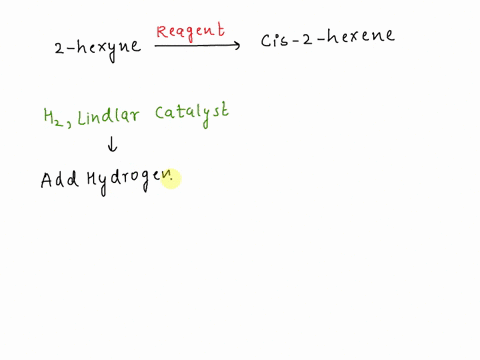 2-hexyne Reagent Cis-2-hexene
H2, Lindlar Catalyst
Add Hydrogen